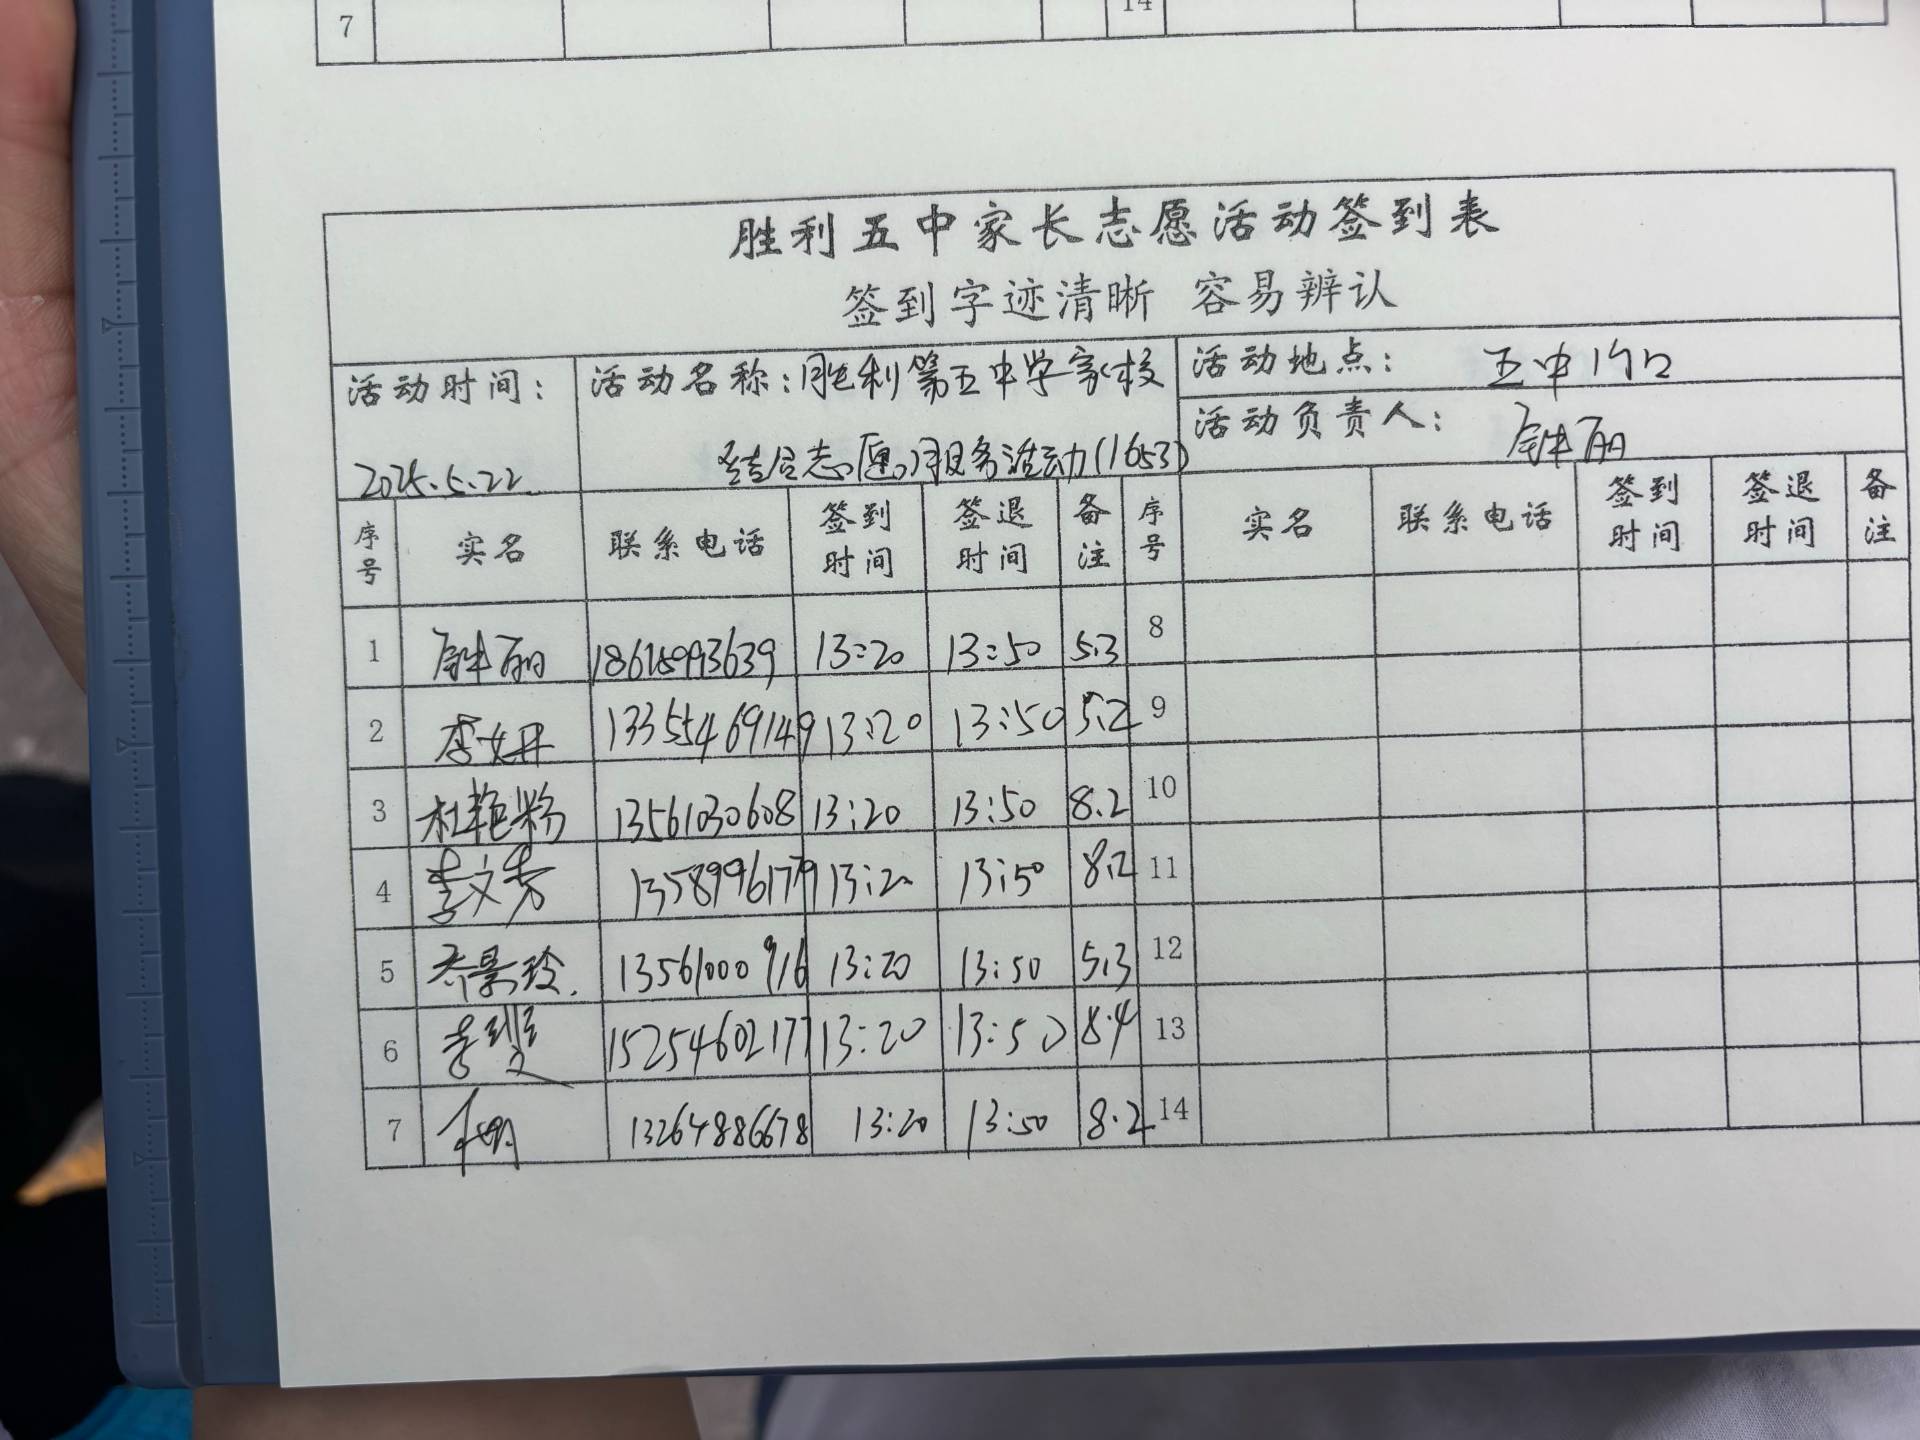 7 14
胜利五中家长志愿活动签到表
签到字迹清晰 容易辨认
活动时间：
2025.5.22
活动名称：胜利第五中学家校
结合志愿服务活动(1653)
活动地点： 五中门口
活动负责人： 丽
序号 实名 联系电话 签到时间 签退时间 备注 序号 实名 联系电话 签到时间 签退时间 备注
1 丽 13:20 13:50 5.3 8
2 李文丹 13355469149 13:20 13:50 5.2 9
3 杜艳粉 13561030608 13:20 13:50 8.2 10
4 李文秀 13589961779 13:20 13:50 8.2 11
5 乔景玲. 13561000916 13:20 13:50 5.3 12
6 李 15254602177 13:20 13:50 8.4 13
7 13264886678 13:20 13:50 8.2 14